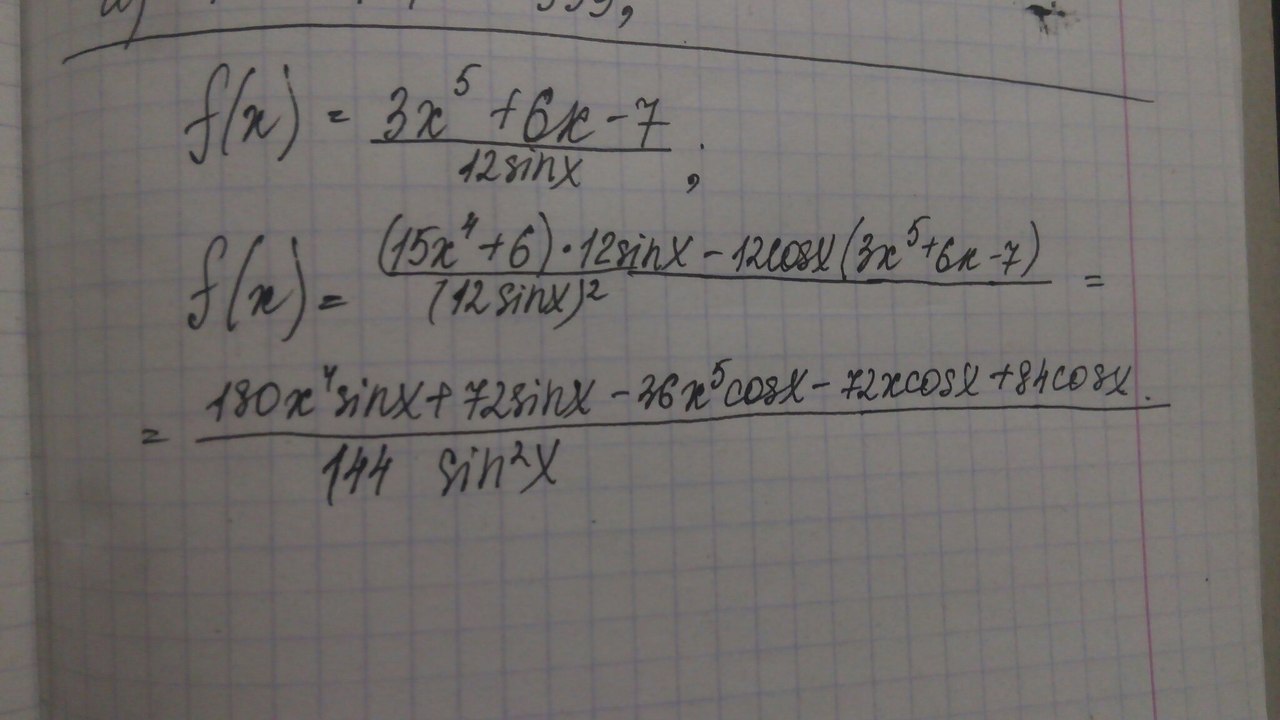 f(x) = (3x⁵ + 6x - 7) / (12 sin x) ;
f(x) = ((15x⁴ + 6) · 12 sin x - 12 cos x (3x⁵ + 6x - 7)) / (12 sin x)² =
= (180x⁴ sin x + 72 sin x - 36x⁵ cos x - 72x cos x + 84 cos x) / (144 sin² x) .